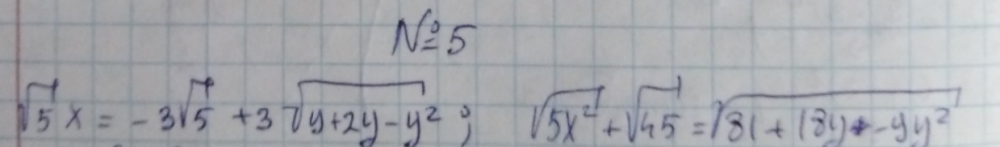 №5
√5 x = -3√5 + 3√y+2y-y² ; √5x² + √45 = √81+18y-9y²